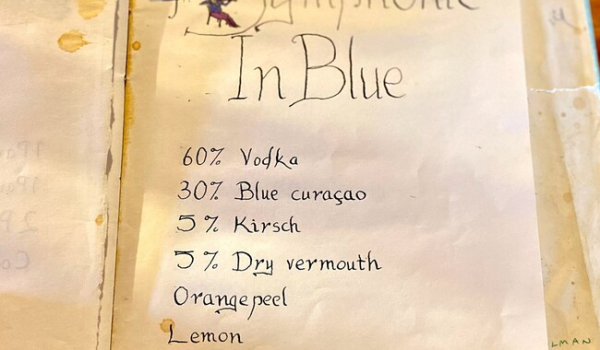 Symphonic
In Blue
60% Vodka
30% Blue curaçao
5% Kirsch
5% Dry vermouth
Orangepeel
Lemon
LMAN